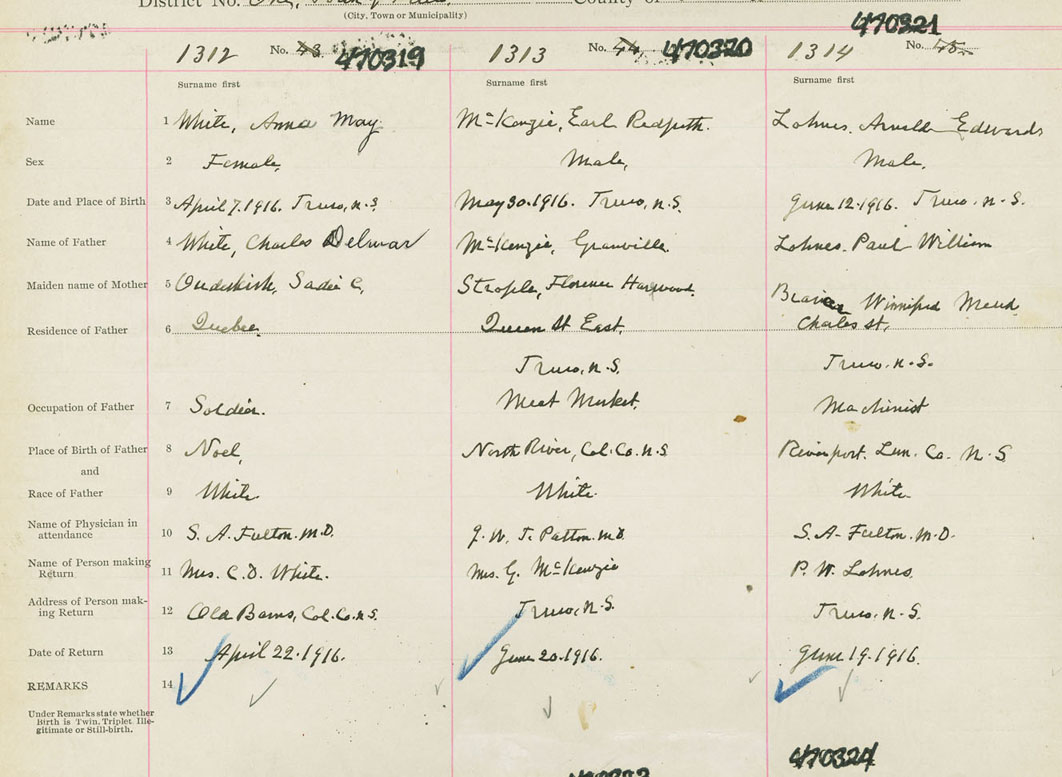 District No. County of
(City, Town or Municipality)
470321
1312 No. 43 470319 1313 No. 44 470320 1314 No. 45
Surname first Surname first Surname first
Name 1 White, Anna May McKenzie, Earl Redputh. Lohnes, Arnold Edwards
Sex 2 Female, Male, Male.
Date and Place of Birth 3 April 7. 1916. Truro, N.S. May 30. 1916. Truro, N.S. June 12. 1916. Truro. N.S.
Name of Father 4 White, Charles Delmar McKenzie, Granville. Lohnes. Paul William
Maiden name of Mother 5 Ouderkirk, Sadie C. Strople, Florence Harwood. Winnifred Maud
Residence of Father 6 Quebec. Queen St East, Charles St,
Truro, N.S. Truro. N.S.
Occupation of Father 7 Soldier. Meat Market. Machinist
Place of Birth of Father 8 Noel, North River, Col. Co. N.S Riverport. Lun. Co. N.S
and
Race of Father 9 White. White. White
Name of Physician in
attendance 10 S. A. Fulton. M.D. J. W. T. Patton. M.D. S. A. Fulton. M.D.
Name of Person making
Return 11 Mrs. C. D. White. Mrs. G. McKenzie P. W. Lohnes.
Address of Person mak-
ing Return 12 Old Barns, Col. Co. N.S. Truro, N.S. Truro, N.S.
Date of Return 13 April 22. 1916. June 20. 1916. June 19. 1916.
REMARKS 14
Under Remarks state whether
Birth is Twin, Triplet, Ille-
gitimate or Still-birth.
470324